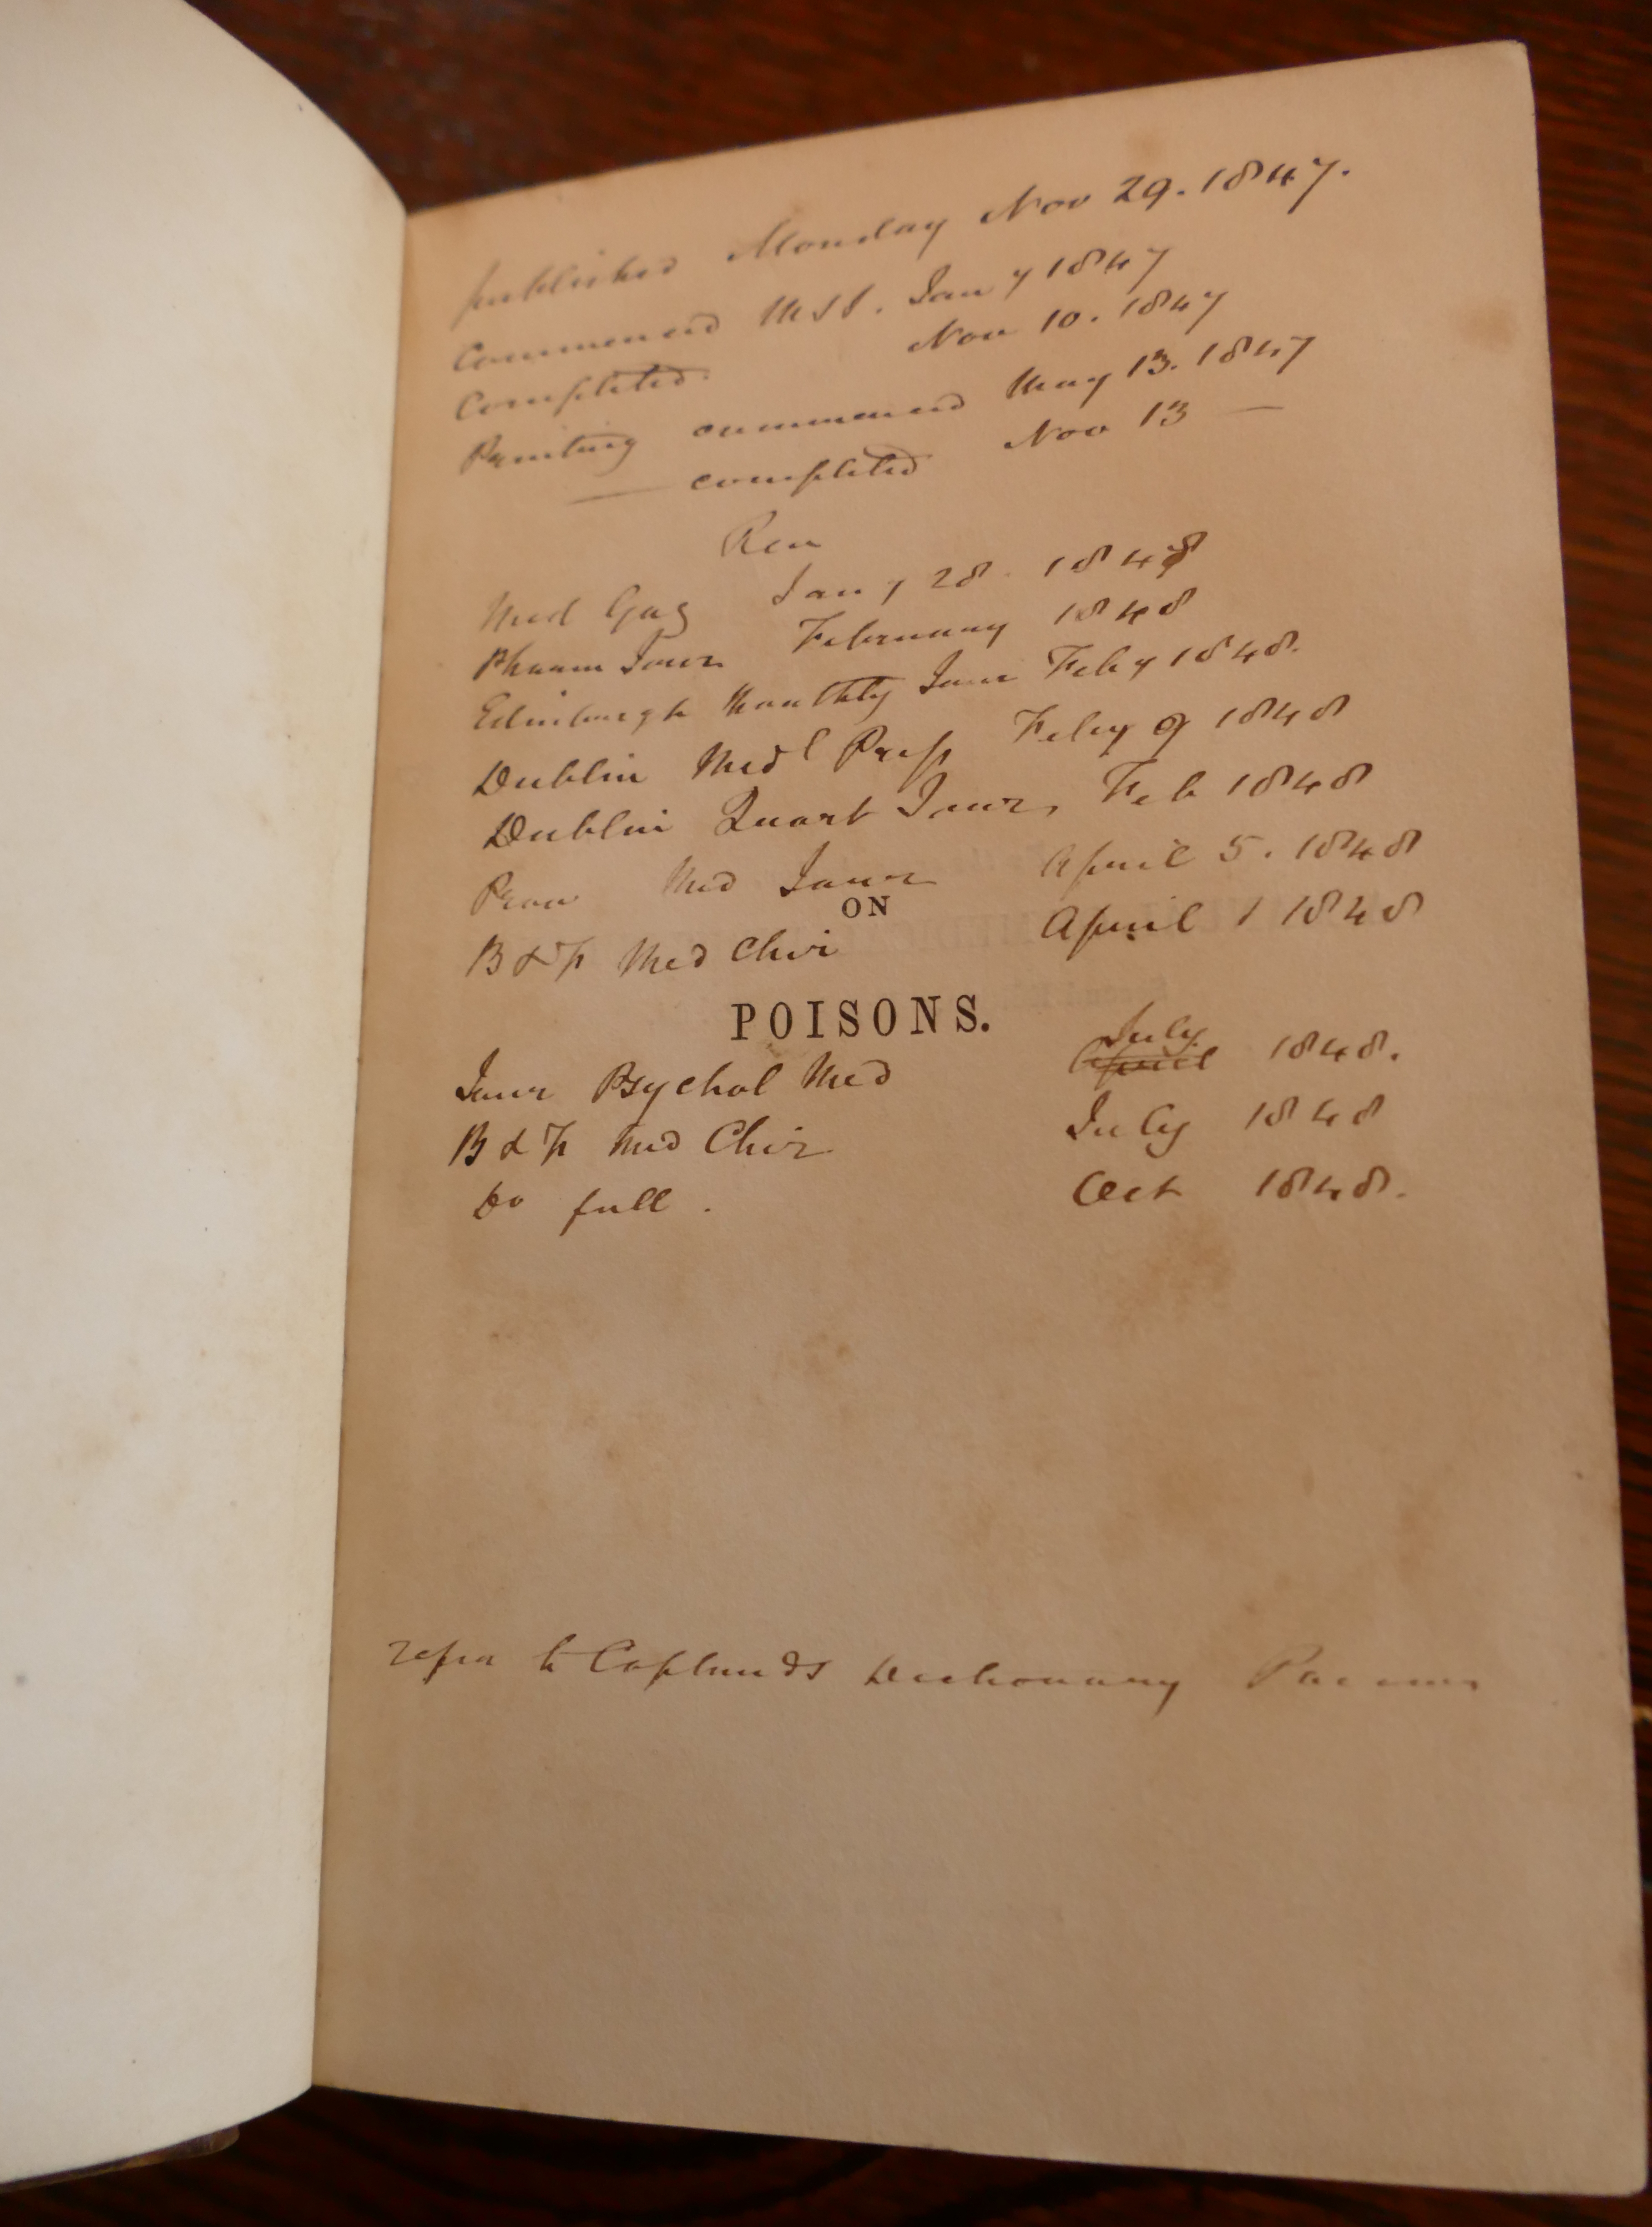 published Monday Nov 29. 1847.
Commenced MSS. Jany 1847
Completed. Nov 10. 1847
Printing commenced May 13. 1847
— completed Nov 13 —
Rev
Med Gaz Jany 28. 1848
Pharm Jour February 1848
Edinburgh Monthly Jour Feby 1848.
Dublin Medl Press Feby 9 1848
Dublin Quart Jour, Feb 1848
Prov Med Jour April 5. 1848
ON
B & F Med Chir April 1 1848
POISONS.
July
Jour Psychol Med April 1848.
B & F Med Chir July 1848
Do full. Oct 1848.
refer to Coplands Dictionary